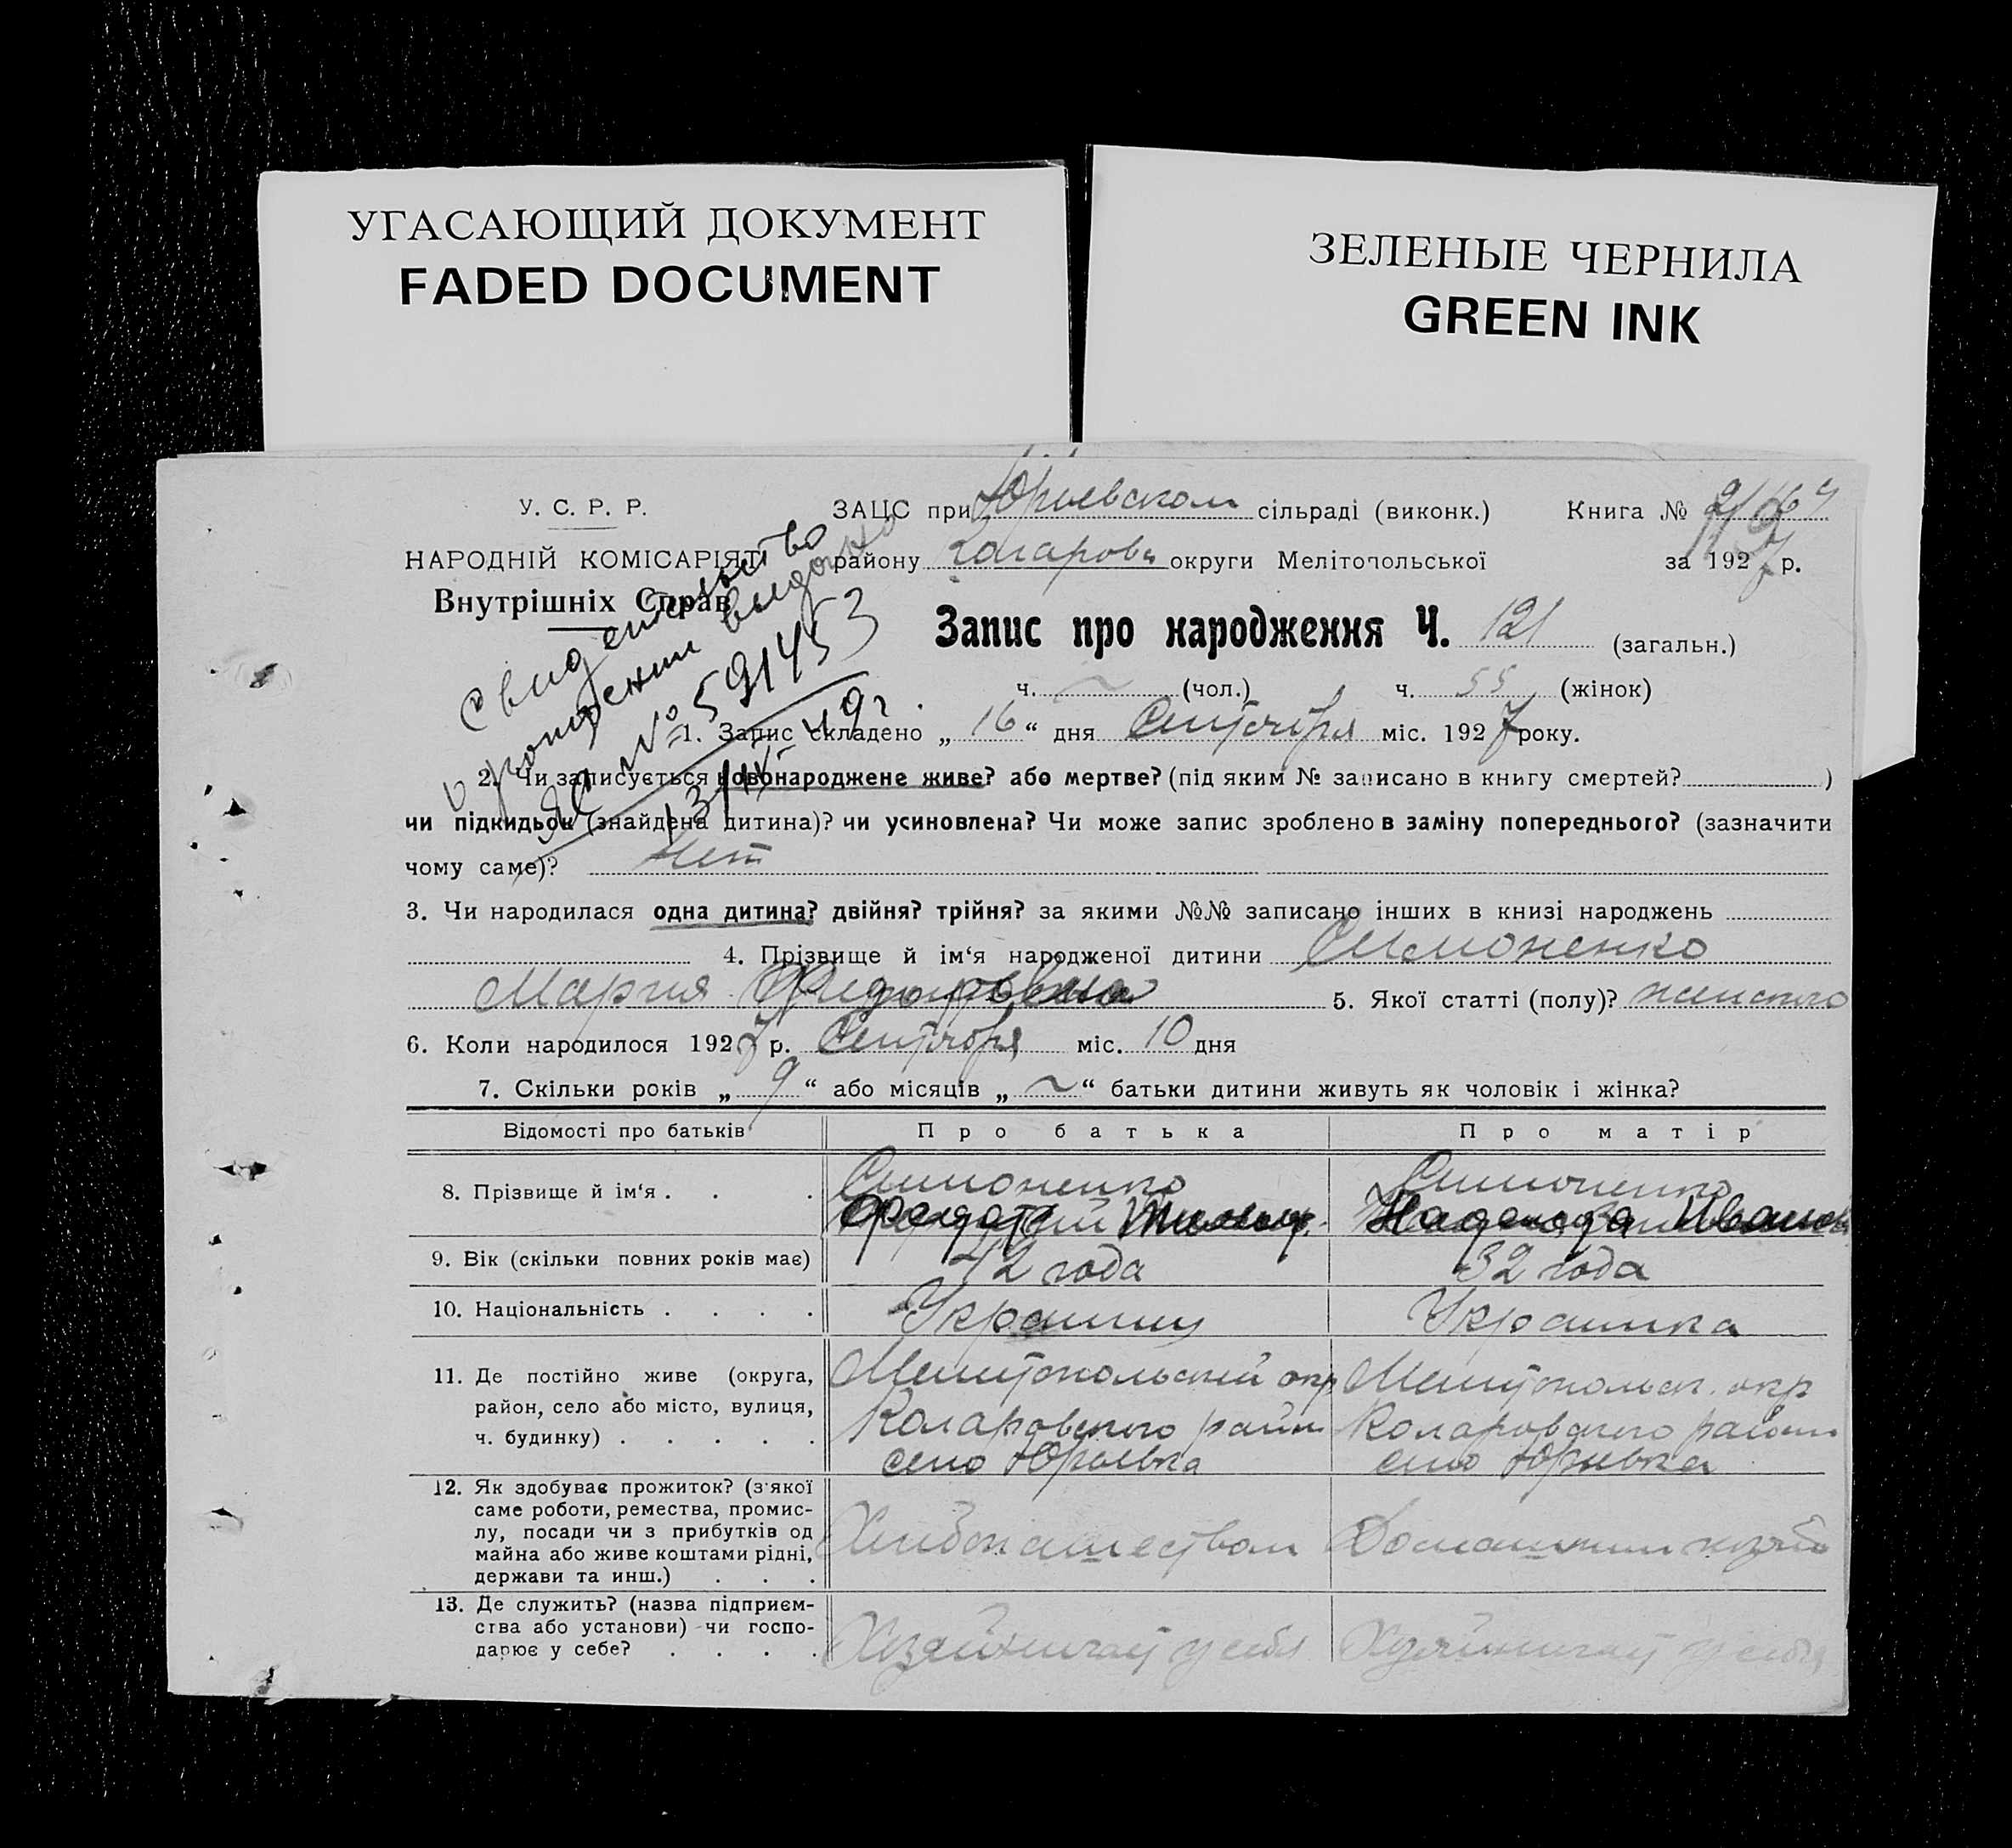 УГАСАЮЩИЙ ДОКУМЕНТ
FADED DOCUMENT
ЗЕЛЕНЫЕ ЧЕРНИЛА
GREEN INK
У. С. Р. Р.
НАРОДНІЙ КОМІСАРІЯТ
Внутрішніх Справ
ЗАЦС при Юрьевском сільраді (виконк.)
Книга №
району Коларовск округи Мелітопольської
за 1927 р.
Запис про народження Ч. 121 (загальн.)
ч. ~ (чол.) ч. 55 (жінок)
Свидетельство
о рождении выдано
ЯС № 591453
13/IX-49г.
1. Запис складено „ 16 “ дня Сентября міс. 1927 року.
2. Чи записується новонароджене живе? або мертве? (під яким № записано в книгу смертей? )
чи підкидьок (знайдена дитина)? чи усиновлена? Чи може запис зроблено в заміну попереднього? (зазначити
чому саме)? нет
3. Чи народилася одна дитина? двійня? трійня? за якими №№ записано інших в книзі народжень
4. Прізвище й ім‘я народженої дитини Симоненко
Мария 5. Якої статті (полу)? женского
6. Коли народилося 1927 р. Сентября міс. 10 дня
7. Скільки років „ 9 “ або місяців „ ~ “ батьки дитини живуть як чоловік і жінка?
Відомості про батьків Про батька Про матір
8. Прізвище й ім‘я . . . Симоненко Симоненко
Надежда Иванов
9. Вік (скільки повних років має) 42 года 32 года
10. Національність . . . . Украинец Украинка
11. Де постійно живе (округа,
район, село або місто, вулиця,
ч. будинку) . . . . .
Мелитопольский окр
Коларовского район
село Юрьевка
Мелитопольск. окр
Коларовского район
село Юрьевка
12. Як здобуває прожиток? (з якої
саме роботи, ремества, промис-
лу, посади чи з прибутків од
майна або живе коштами рідні,
держави та инш.) . . .
Хлибопашеством
Домашним
13. Де служить? (назва підприєм-
ства або установи) чи госпо-
дарює у себе? . . . .
Хозяйничает у себя
Хозяйничает у себя